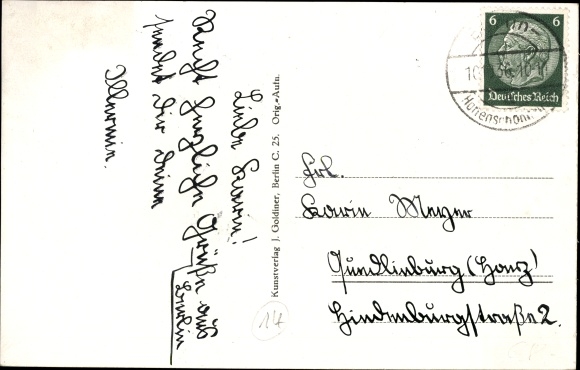 Liebe Karin!
Recht herzliche Grüße aus
Berlin
sendet Dir Deine
Kunstverlag J. Goldiner, Berlin C. 25. Orig.-Aufn.
6 6
Deutsches Reich
Hohenschönh
Frl.
Karin Meyer
Quedlinburg (Harz)
Hindenburgstraße 2.
14